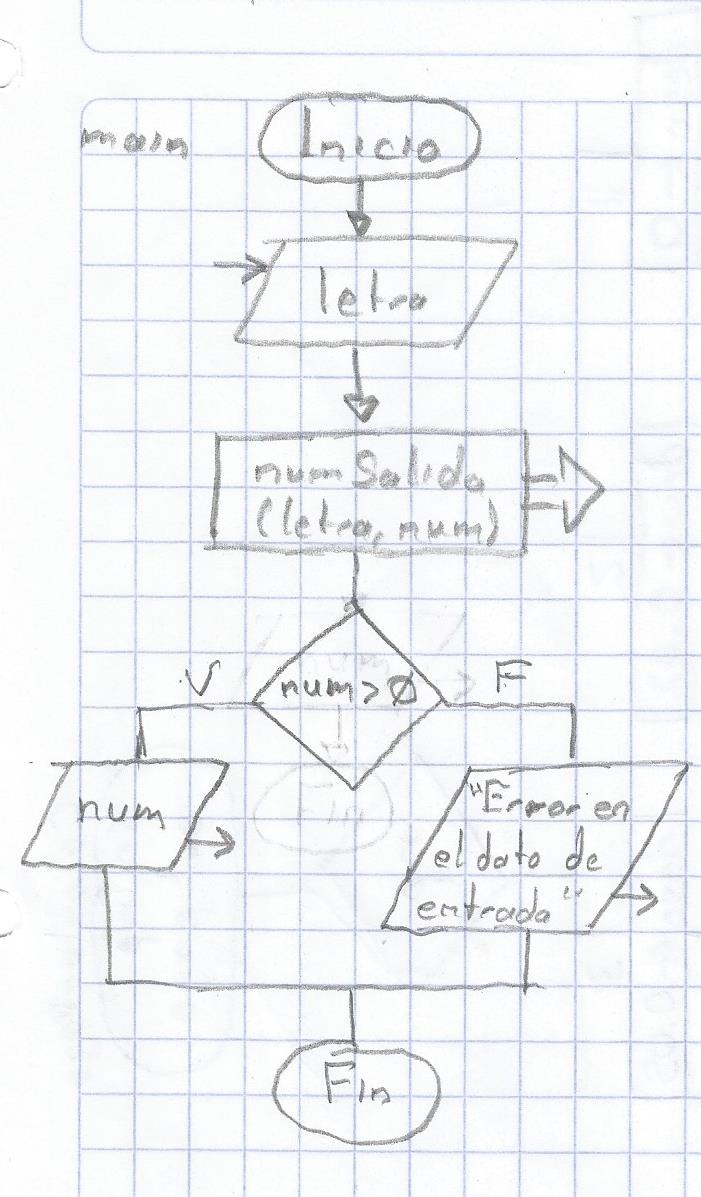 main
Inicio
letra
numSalida
(letra, num)
num > Ø
V
F
num
"Error en
el dato de
entrada"
Fin